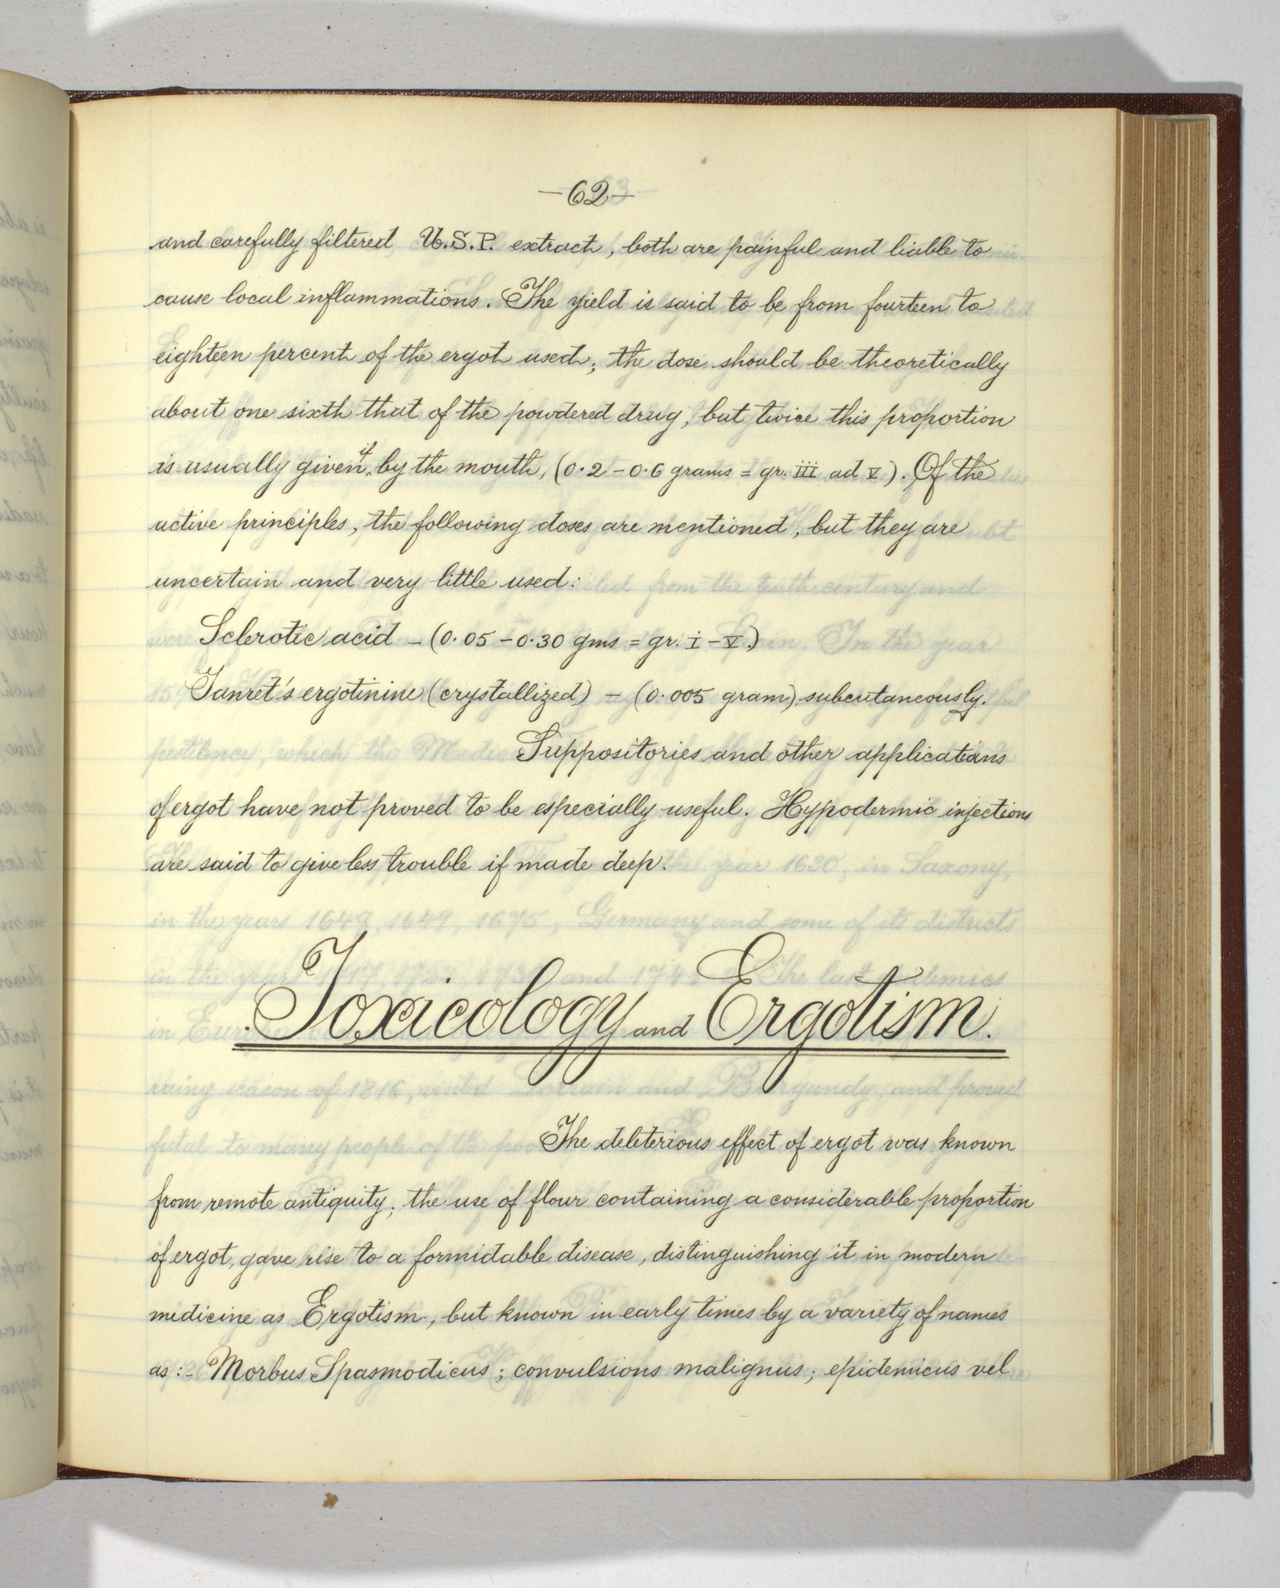 —62—
and carefully filtered U.S.P. extract, both are painful and liable to
cause local inflammations. The yield is said to be from fourteen to
eighteen percent of the ergot used; the dose should be theoretically
about one sixth that of the powdered drug, but twice this proportion
is usually given, if by the mouth, (0.2 – 0.6 grams = gr. iii ad v). Of the
active principles, the following doses are mentioned, but they are
uncertain and very little used:
Sclerotic acid – (0.05 – 0.30 gms = gr. i – v.)
Tanret's ergotinine (crystallized) – (0.005 gram) subcutaneously.
Suppositories and other applications
of ergot have not proved to be especially useful. Hypodermic injections
are said to give less trouble if made deep.
Toxicology and Ergotism.
The deleterious effect of ergot was known
from remote antiquity; the use of flour containing a considerable proportion
of ergot, gave rise to a formidable disease, distinguishing it in modern
medicine as Ergotism, but known in early times by a variety of names
as:- Morbus Spasmodicus; convulsions malignus; epidemicus vel